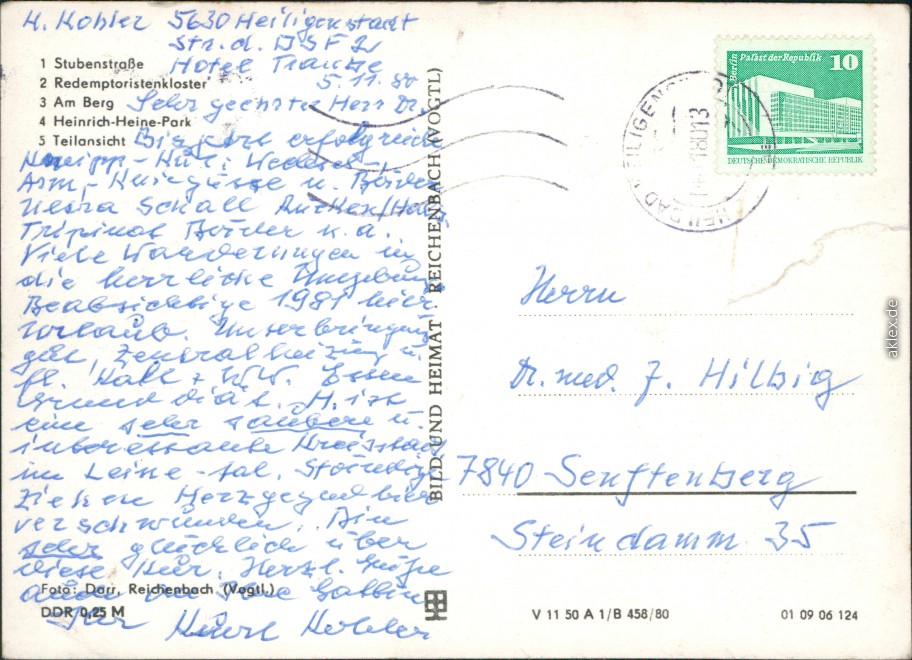 K. Kohler 5630 Heiligenstadt
Str. d. DSF 2
Hotel Traube
5.11.80
1 Stubenstraße
2 Redemptoristenkloster
3 Am Berg
4 Heinrich-Heine-Park
5 Teilansicht
Sehr geehrter Herr Dr.
Bis jetzt erfolgreich
Kneipp-Kur: Wechsel-,
Arm-, Kniegüsse u. Bäder
Schall
Bäder u.a.
Viele Wanderungen in
die herrliche Umgebung
Beabsichtige 1981 hier
Urlaub. Unterbringung
gut, Zentralheizung u.
fl. Kalt + WW. Essen
H. ist
eine sehr saubere u.
interessante Kreisstadt
im Leine-tal. Ständige
Ziehen Herzgegend
verschwunden. Bin
sehr glücklich über
diese Kur. Herzl. Grüße
auch an Ihre Gattin
Ihr Kurt Kohler
Foto: Darr, Reichenbach (Vogtl.)
DDR 0,25 M
BILD UND HEIMAT REICHENBACH (VOGTL)
Berlin Palast der Republik 10
DEUTSCHE DEMOKRATISCHE REPUBLIK
Herrn
Dr. med. J. Hilbig
7840 Senftenberg
Steindamm 35
V 11 50 A 1/B 458/80
01 09 06 124
aklex.de